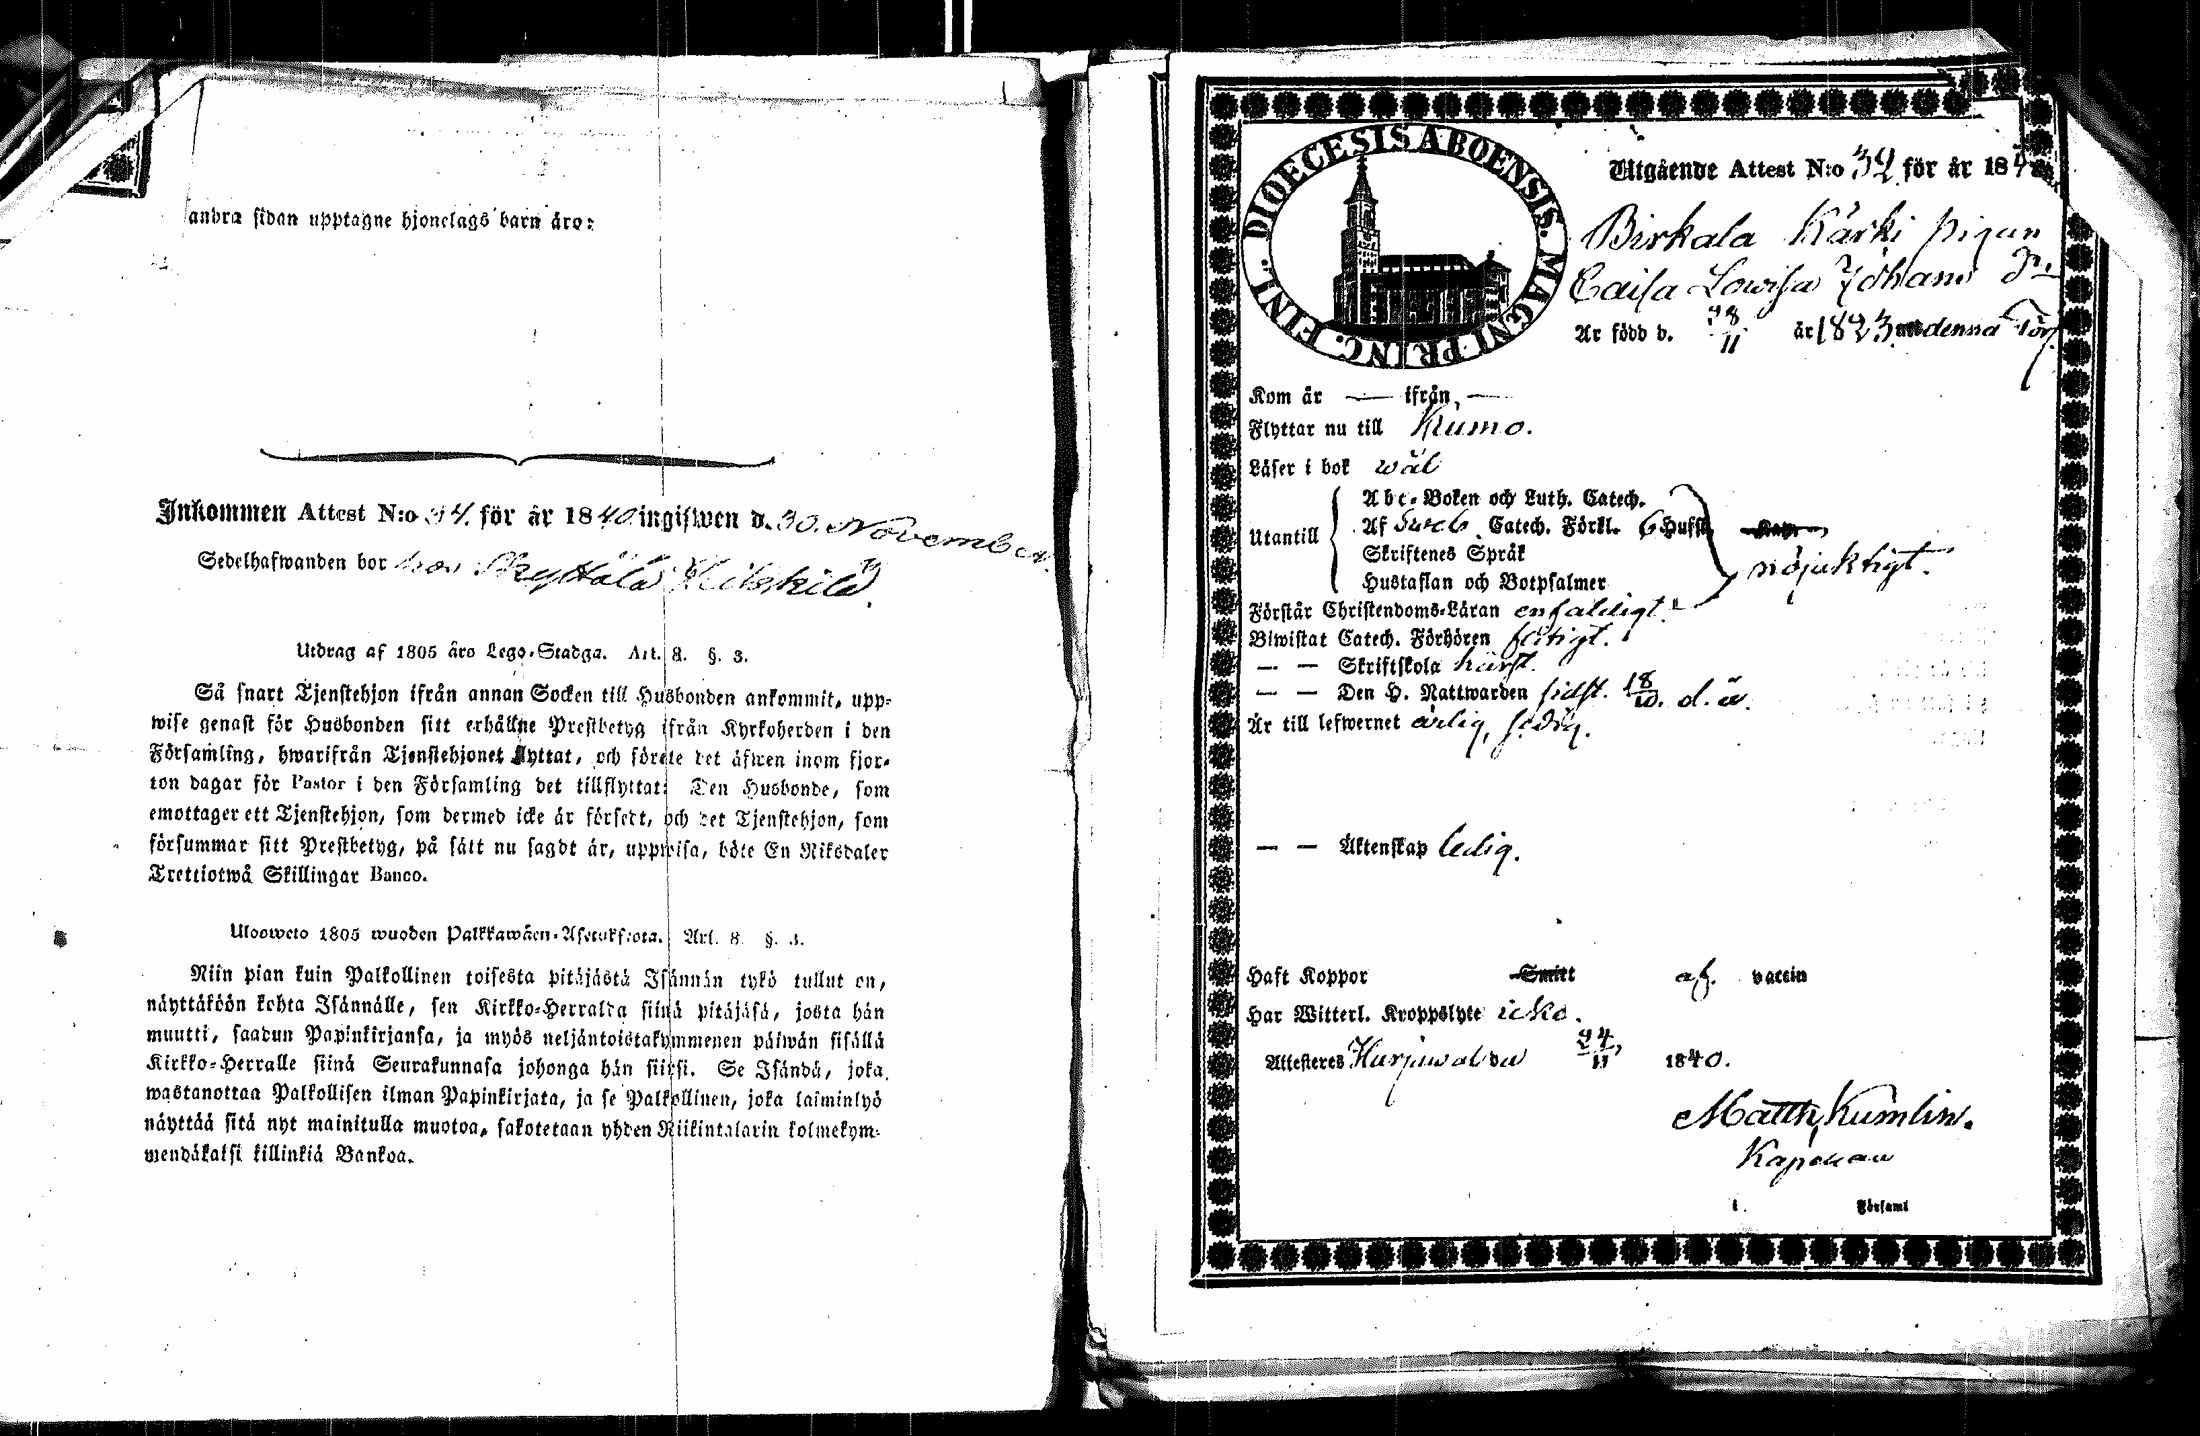 andra sidan upptagne hjonelags barn äro:
Inkommen Attest N:o 34. för år 1840 ingifwen d. 30. November.
Sedelhafwanden bor hos
Utdrag af 1805 års Lego-Stadga. Art. 8. §. 3.
Så snart Tjenstehjon ifrån annan Socken till Husbonden ankommit, upp-
wise genast för Husbonden sitt erhållne Prestbetyg ifrån Kyrkoherden i den
Församling, hwarifrån Tjenstehjonet flyttat, och förete det äfwen inom fjor-
ton dagar för Pastor i den Församling det tillflyttat: Den Husbonde, som
emottager ett Tjenstehjon, som dermed icke är försedt, och det Tjenstehjon, som
försummar sitt Prestbetyg, på sätt nu sagdt är, uppwisa, böte En Riksdaler
Trettiotwå Skillingar Banco.
Uloswето 1805 wuoden Palkkawäen-Asetuksesta. Art. 8. §. 3.
Niin pian kuin Palkollinen toisesta pitäjästä Isännän tykö tullut on,
näyttäköön kohta Isännälle, sen Kirkko-Herralda siinä pitäjäsä, josta hän
muutti, saadun Papinkirjansa, ja myös neljäntoistakymmenen päiwän sisällä
Kirkko-Herralle siinä Seurakunnasa johonga hän siirsi. Se Isändä, joka
wastanottaa Palkollisen ilman Papinkirjata, ja se Palkollinen, joka laiminlyö
näyttää sitä nyt mainitulla muotoa, sakotetaan yhden Riikintalarin kolmekym-
mendäkaksi killinkiä Bankoa.
DIOECESIS ABOENSIS. MAGNI PRINC. FINL.
Utgående Attest N:o 32 för år 184
Birkala Kärki pigan
Caisa Lowisa Johans Dr
Är född d. 28/11 år 1823. denna Förs.
Kom år — ifrån, —
Flyttar nu till Kumo.
Läser i bok wäl
Utantill
Abc-Boken och Luth. Catech.
Af Sweb. Catech. Förkl. 6 Hufst.
Skriftenes Språk
Hustaflan och Botpsalmer
nöjaktigt.
Förstår Christendoms-Läran enfaldigt.
Biwistat Catech. Förhören flitigt.
— — Skriftskola härst.
— — Den H. Nattwarden sidst. 18/10. d. å.
Är till lefwernet ärlig, sedig.
— — Äktenskap ledig.
Haft Koppor Smitt af. vaccin
Har Witterl. Kroppslyte icke.
Attesteres Harjawalda 24/11 1840.
Matth, Kumlin.
Kapellan
i Församl